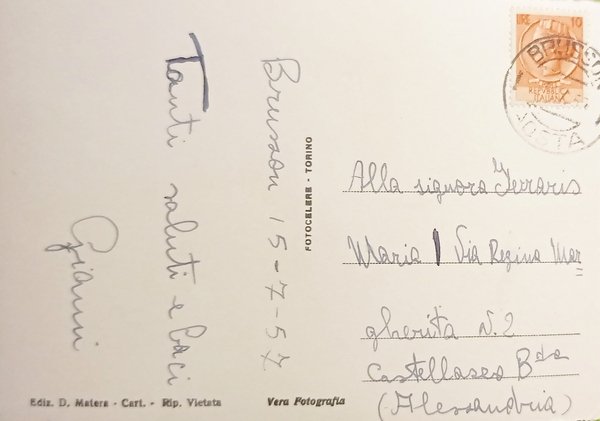 Brusson 15-7-57
Tanti saluti e baci
Gianni
FOTOCELERE - TORINO
LIRE 10
REPVBBLICA
ITALIANA
BRUSSON
AOSTA
Alla signora Ferraris
Maria Via Regina Mar
gherita N. 2
Castellaseo Bda
(Alessandria)
Ediz. D. Matera - Cart. - Rip. Vietata
Vera Fotografia